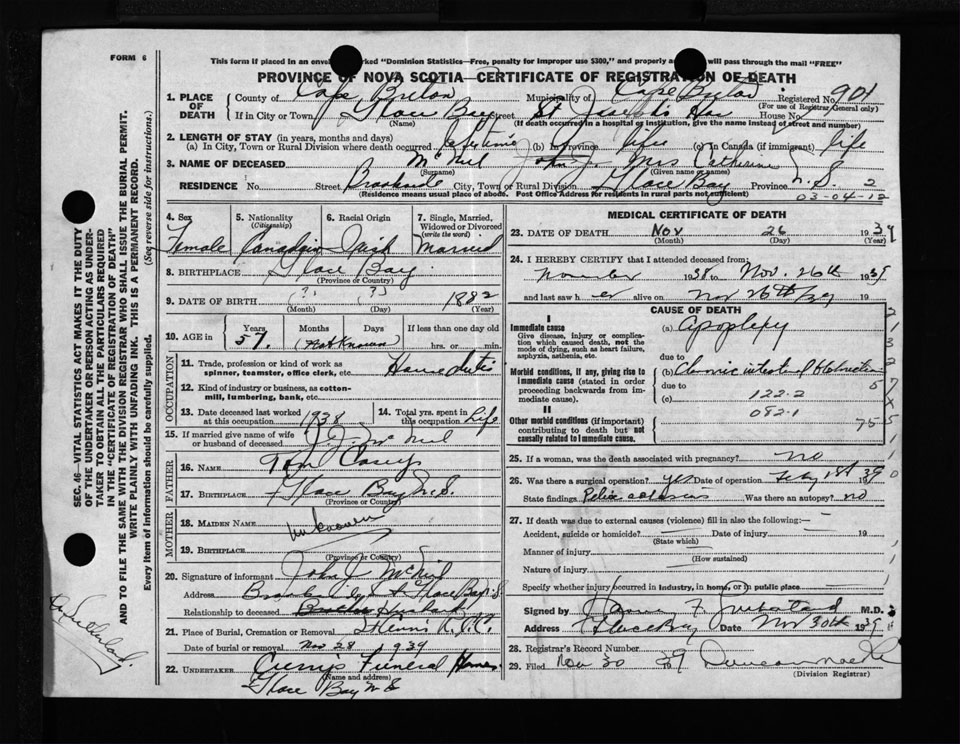 FORM 6
This form if placed in an envel rked "Dominion Statistics—Free, penalty for improper use $300," and properly a will pass through the mail "FREE"
PROVINCE OF NOVA SCOTIA—CERTIFICATE OF REGISTRATION OF DEATH
1. PLACE OF DEATH County of Cape Breton Municipality of Cape Breton Registered No. 901
(For use of Registrar General only)
If in City or Town Glace Bay Street St. Joseph's
(Name) (If death occurred in a hospital or institution, give the name instead of street and number)
2. LENGTH OF STAY (in years, months and days)
(a) In City, Town or Rural Division where death occurred Lifetime (b) In Province life (c) In Canada (if immigrant) life
3. NAME OF DECEASED McNeil John J. Mrs Catherine
(Surname) (Given name or names)
RESIDENCE No. Street Brookside City, Town or Rural Division Glace Bay Province N.S 2
(Residence means usual place of abode. Post Office Address for residents in rural parts not sufficient)
03-04-12
4. Sex Female
5. Nationality (Citizenship) Canadian
6. Racial Origin Irish
7. Single, Married, Widowed or Divorced (write the word) Married
8. BIRTHPLACE Glace Bay
(Province or Country)
9. DATE OF BIRTH (?) (?) 1882
(Month) (Day) (Year)
10. AGE in Years 57. Months Days (Not Known) If less than one day old
hrs. or min.
OCCUPATION
11. Trade, profession or kind of work as spinner, teamster, office clerk, etc. House duties
12. Kind of industry or business, as cotton-mill, lumbering, bank, etc.
13. Date deceased last worked at this occupation 1938
14. Total yrs. spent in this occupation Life
15. If married give name of wife or husband of deceased J. J. McNeil
FATHER
16. NAME Tom Casey
17. BIRTHPLACE Glace Bay N.S.
(Province or Country)
MOTHER
18. MAIDEN NAME unknown
19. BIRTHPLACE
(Province or Country)
20. Signature of informant John J McNeil
Address Brookside St Glace Bay N.S.
Relationship to deceased Husband
21. Place of Burial, Cremation or Removal
Date of burial or removal Nov 28 1939
22. UNDERTAKER Curry's Funeral Home
(Name and address)
Glace Bay N S
MEDICAL CERTIFICATE OF DEATH
23. DATE OF DEATH Nov 26 1939
(Month) (Day) (Year)
24. I HEREBY CERTIFY that I attended deceased from:
November 1938 to Nov. 26th 1939
and last saw her alive on Nov 26th/39 19
CAUSE OF DEATH
I
Immediate cause
Give disease, injury or complication which caused death, not the mode of dying, such as heart failure, asphyxia, asthenia, etc.
(a) Apoplexy
due to
Morbid conditions, if any, giving rise to immediate cause (stated in order proceeding backwards from immediate cause).
(b) Chronic intestinal Obstruction
due to
(c) 122.2
082.1
II
Other morbid conditions (if important) contributing to death but not causally related to immediate cause.
25. If a woman, was the death associated with pregnancy? no
26. Was there a surgical operation? yes Date of operation Feby 1st 1939
State findings Pelvic Was there an autopsy? no
27. If death was due to external causes (violence) fill in also the following:—
Accident, suicide or homicide? Date of injury 19
(State which)
Manner of injury
(How sustained)
Nature of injury
Specify whether injury occurred in industry, in home, or in public place
Signed by M.D.
Address Glace Bay Date Nov 30th 1939
28. Registrar's Record Number
29. Filed Nov 30 39 Duncan
(Division Registrar)
SEC. 46—VITAL STATISTICS ACT MAKES IT THE DUTY
OF THE UNDERTAKER OR PERSON ACTING AS UNDER-
TAKER TO OBTAIN ALL THE PARTICULARS REQUIRED
IN THE "CERTIFICATE OF REGISTRATION OF DEATH"
AND TO FILE THE SAME WITH THE DIVISION REGISTRAR WHO SHALL ISSUE THE BURIAL PERMIT.
WRITE PLAINLY WITH UNFADING INK. THIS IS A PERMANENT RECORD.
Every item of information should be carefully supplied. (See reverse side for instructions.)